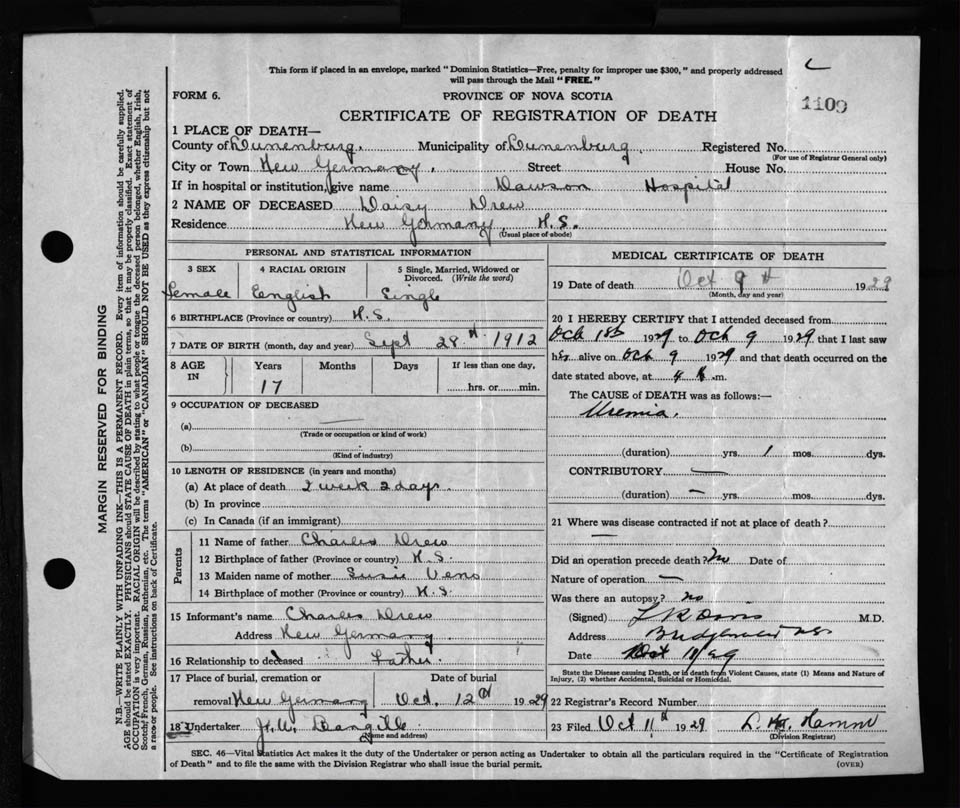 This form if placed in an envelope, marked "Dominion Statistics—Free, penalty for improper use $300," and properly addressed
will pass through the Mail "FREE."
1109
FORM 6.
PROVINCE OF NOVA SCOTIA
CERTIFICATE OF REGISTRATION OF DEATH
1 PLACE OF DEATH—
County of Lunenburg. Municipality of Lunenburg. Registered No.
(For use of Registrar General only)
City or Town New Germany. Street House No.
If in hospital or institution, give name Dawson Hospital
2 NAME OF DECEASED Daisy Drew
Residence New Germany, N.S.
(Usual place of abode)
PERSONAL AND STATISTICAL INFORMATION
3 SEX 4 RACIAL ORIGIN 5 Single, Married, Widowed or
Divorced. (Write the word)
Female English Single
6 BIRTHPLACE (Province or country) N.S.
7 DATE OF BIRTH (month, day and year) Sept 28th 1912
8 AGE IN Years Months Days If less than one day,
17 hrs. or min.
9 OCCUPATION OF DECEASED
(a)
(Trade or occupation or kind of work)
(b)
(Kind of industry)
10 LENGTH OF RESIDENCE (in years and months)
(a) At place of death week 2 days.
(b) In province
(c) In Canada (if an immigrant)
Parents
11 Name of father Charles Drew
12 Birthplace of father (Province or country) N.S.
13 Maiden name of mother Susie Veno
14 Birthplace of mother (Province or country) N.S.
15 Informant's name Charles Drew
Address New Germany
16 Relationship to deceased Father
17 Place of burial, cremation or Date of burial
removal New Germany Oct. 12th 1929
18 Undertaker J.W.
(Name and address)
MEDICAL CERTIFICATE OF DEATH
19 Date of death Oct 9th 1929
(Month, day and year)
20 I HEREBY CERTIFY that I attended deceased from
Oct 1st 1929 to Oct 9 1929 that I last saw
her alive on Oct 9 1929 and that death occurred on
date stated above, at 4 m.
The CAUSE of DEATH was as follows:—
Uremia.
(duration) yrs. 1 mos. dys.
CONTRIBUTORY —
(duration) — yrs. mos. dys.
21 Where was disease contracted if not at place of death?
—
Did an operation precede death? No Date of
Nature of operation —
Was there an autopsy? no
(Signed) M.D.
Address Bridgewater NS
Date Oct 11/29
State the Disease causing Death, or in death from Violent Causes, state (1) Means and Nature of
Injury, (2) whether Accidental, Suicidal or Homicidal.
22 Registrar's Record Number
23 Filed Oct 11th 1929
(Division Registrar)
SEC. 46—Vital Statistics Act makes it the duty of the Undertaker or person acting as Undertaker to obtain all the particulars required in the "Certificate of Registration
of Death" and to file the same with the Division Registrar who shall issue the burial permit.
(OVER)
MARGIN RESERVED FOR BINDING
N.B.—WRITE PLAINLY WITH UNFADING INK—THIS IS A PERMANENT RECORD. Every item of information should be carefully supplied.
AGE should be stated EXACTLY. PHYSICIANS should STATE CAUSE OF DEATH in plain terms, so that it may be properly classified. Exact statement of
OCCUPATION is very important. RACIAL ORIGIN will be described by stating to what people or tongue the deceased person belonged, whether English, Irish,
Scotch, French, German, Russian, Ruthenian, etc. The terms "AMERICAN" or "CANADIAN" SHOULD NOT BE USED as they express citizenship but not
a race or people. See instructions on back of Certificate.